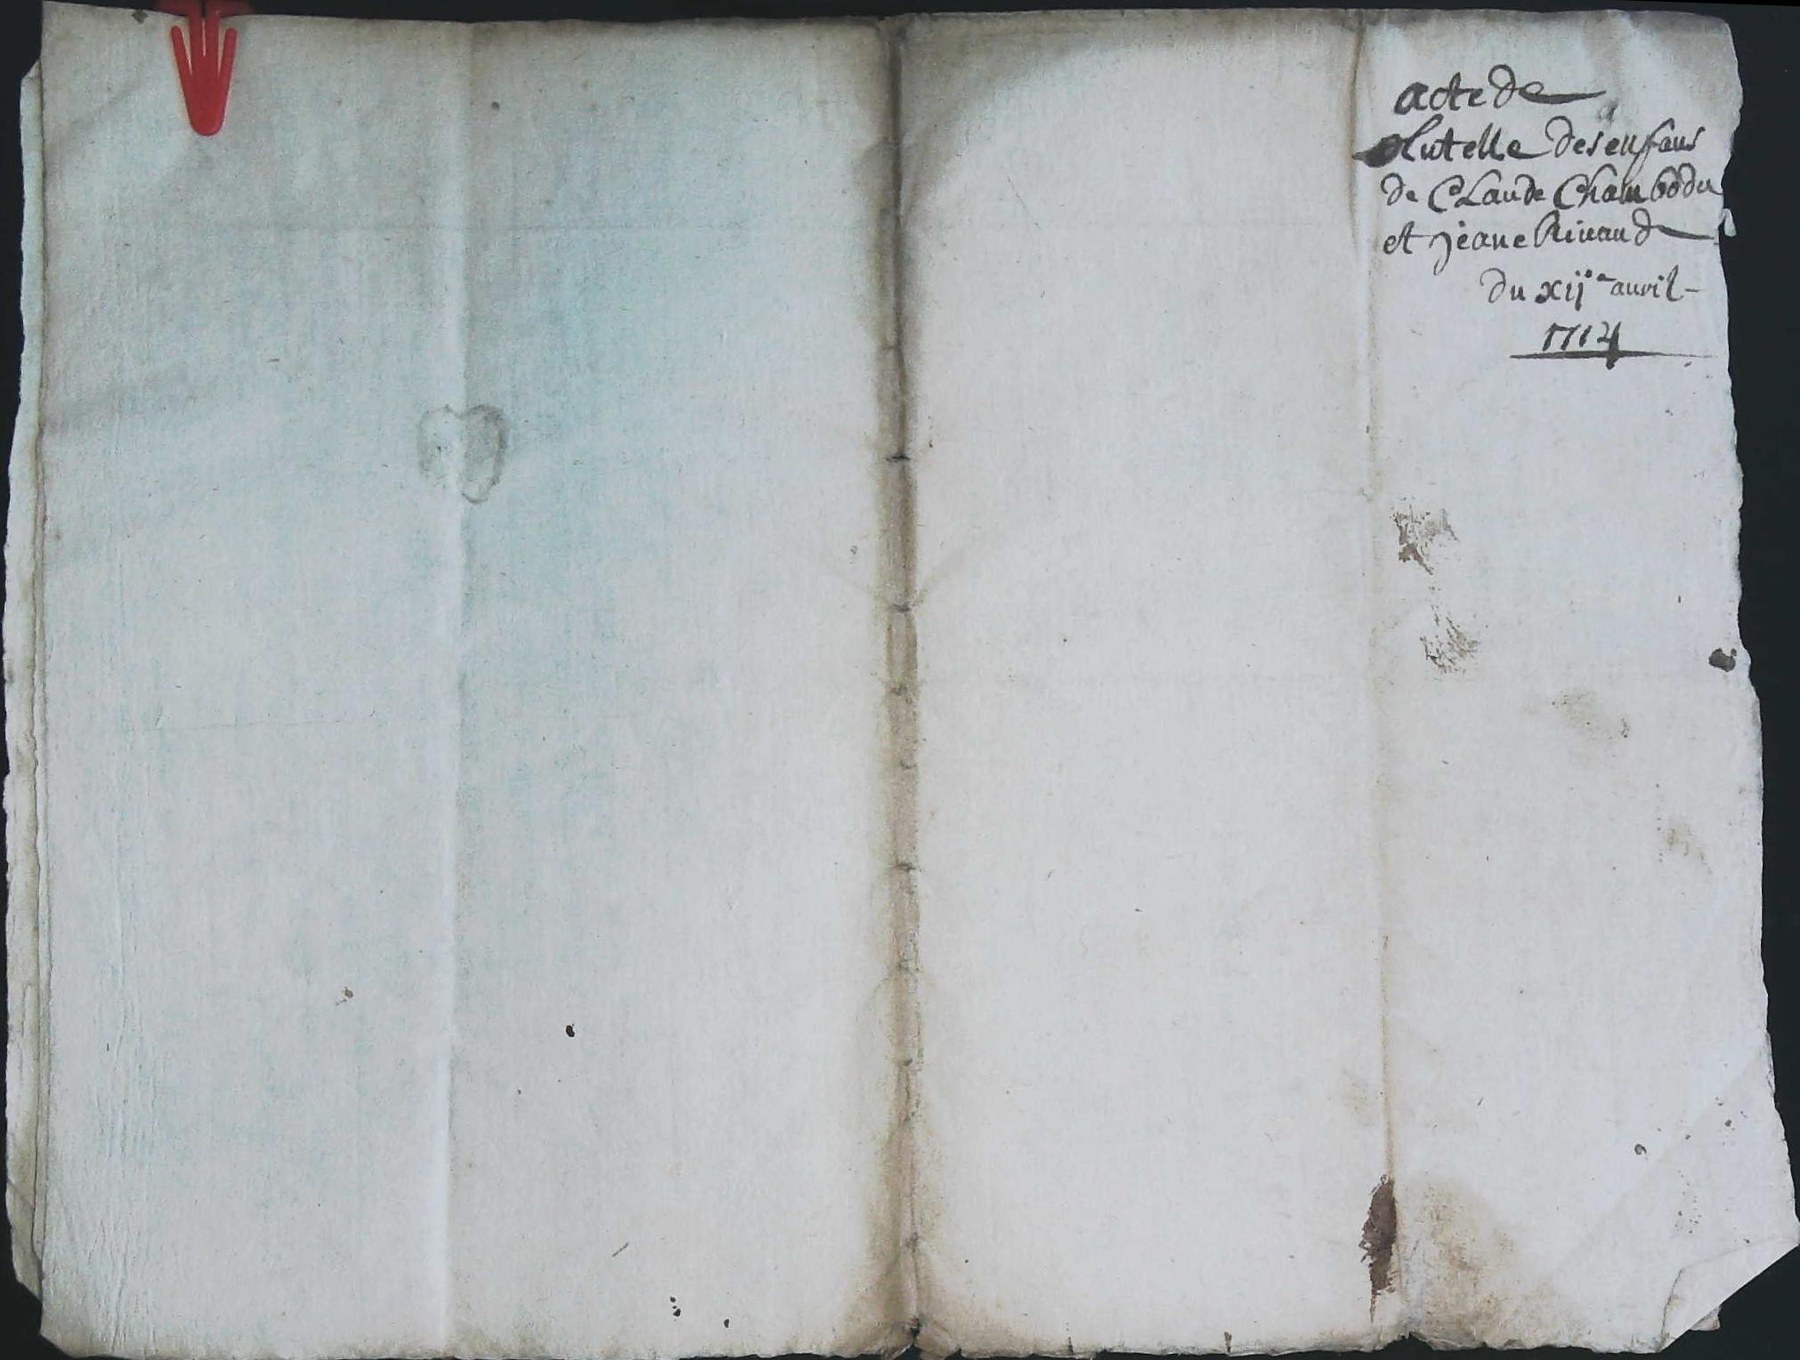 acte de
tutelle des enffans
de Claude Chambodu
et jeane Rivaud
du xije avril
1714